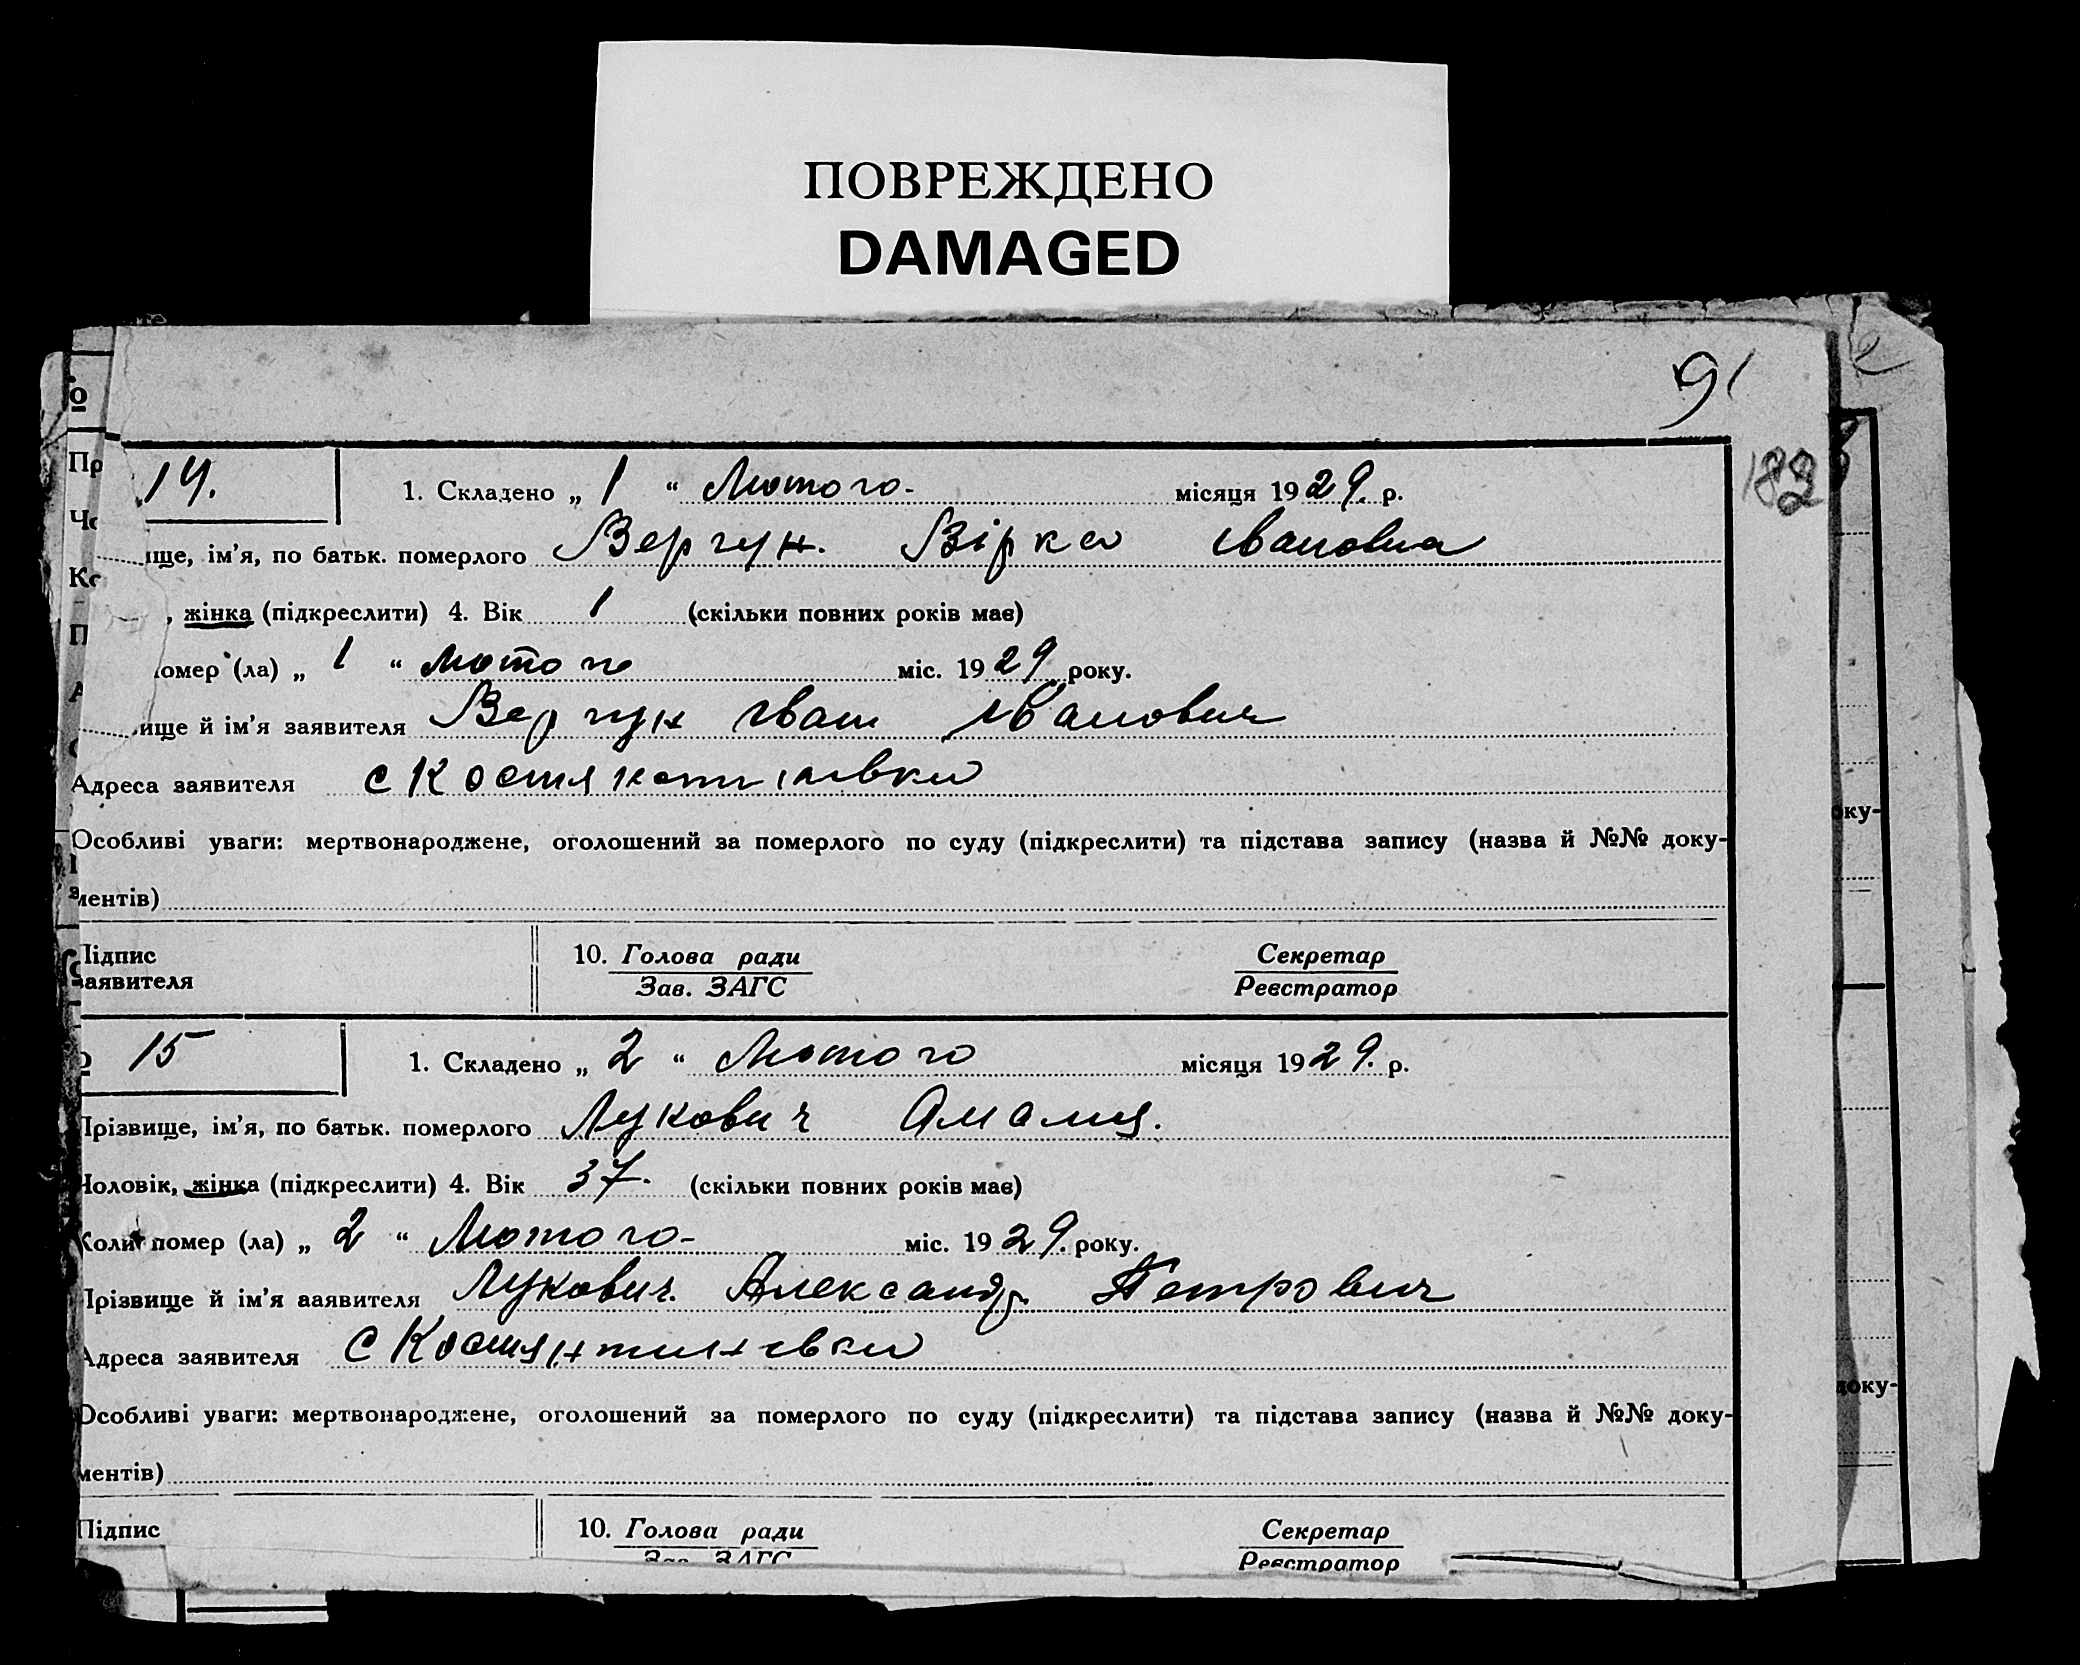 ПОВРЕЖДЕНО
DAMAGED
91
182
О
14. 1. Складено „ 1 “ Лютого- місяця 1929. р.
ище, ім’я, по батьк. померлого Вергун. Вірка Івановна
, жінка (підкреслити) 4. Вік 1 (скільки повних років має)
омер (ла) „ 1 “ Лютого міс. 1929 року.
ище й ім’я заявителя Вергун Іван Іванович
Адреса заявителя с Костянтинівки
Особливі уваги: мертвонароджене, оголошений за померлого по суду (підкреслити) та підстава запису (назва й №№ доку-
ментів)
Підпис 10. Голова ради Секретар
заявителя Зав. ЗАГС Реєстратор
15 1. Складено „ 2 “ Лютого місяця 1929. р.
Прізвище, ім’я, по батьк. померлого Лукович Амалия.
Чоловік, жінка (підкреслити) 4. Вік 37. (скільки повних років має)
Коли помер (ла) „ 2 “ Лютого- міс. 1929. року.
Прізвище й ім’я ааявителя Лукович. Александр Петрович
Адреса заявителя с Костянтинівки
Особливі уваги: мертвонароджене, оголошений за померлого по суду (підкреслити) та підстава запису (назва й №№ доку-
ментів)
Підпис 10. Голова ради Секретар
Зав. ЗАГС Реєстратор